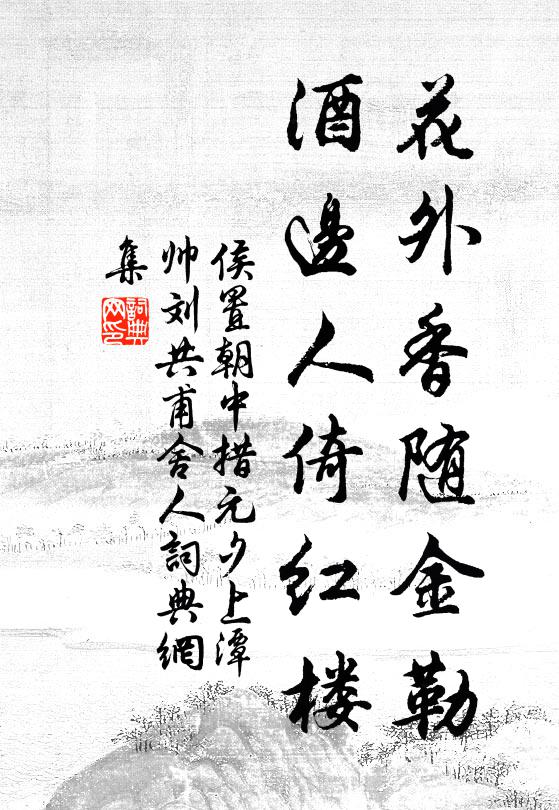 花外香随金勒
酒邊人倚红楼
侯置朝中措元夕上潭
帅刘共甫舍人詞典網
集
詞典
网印